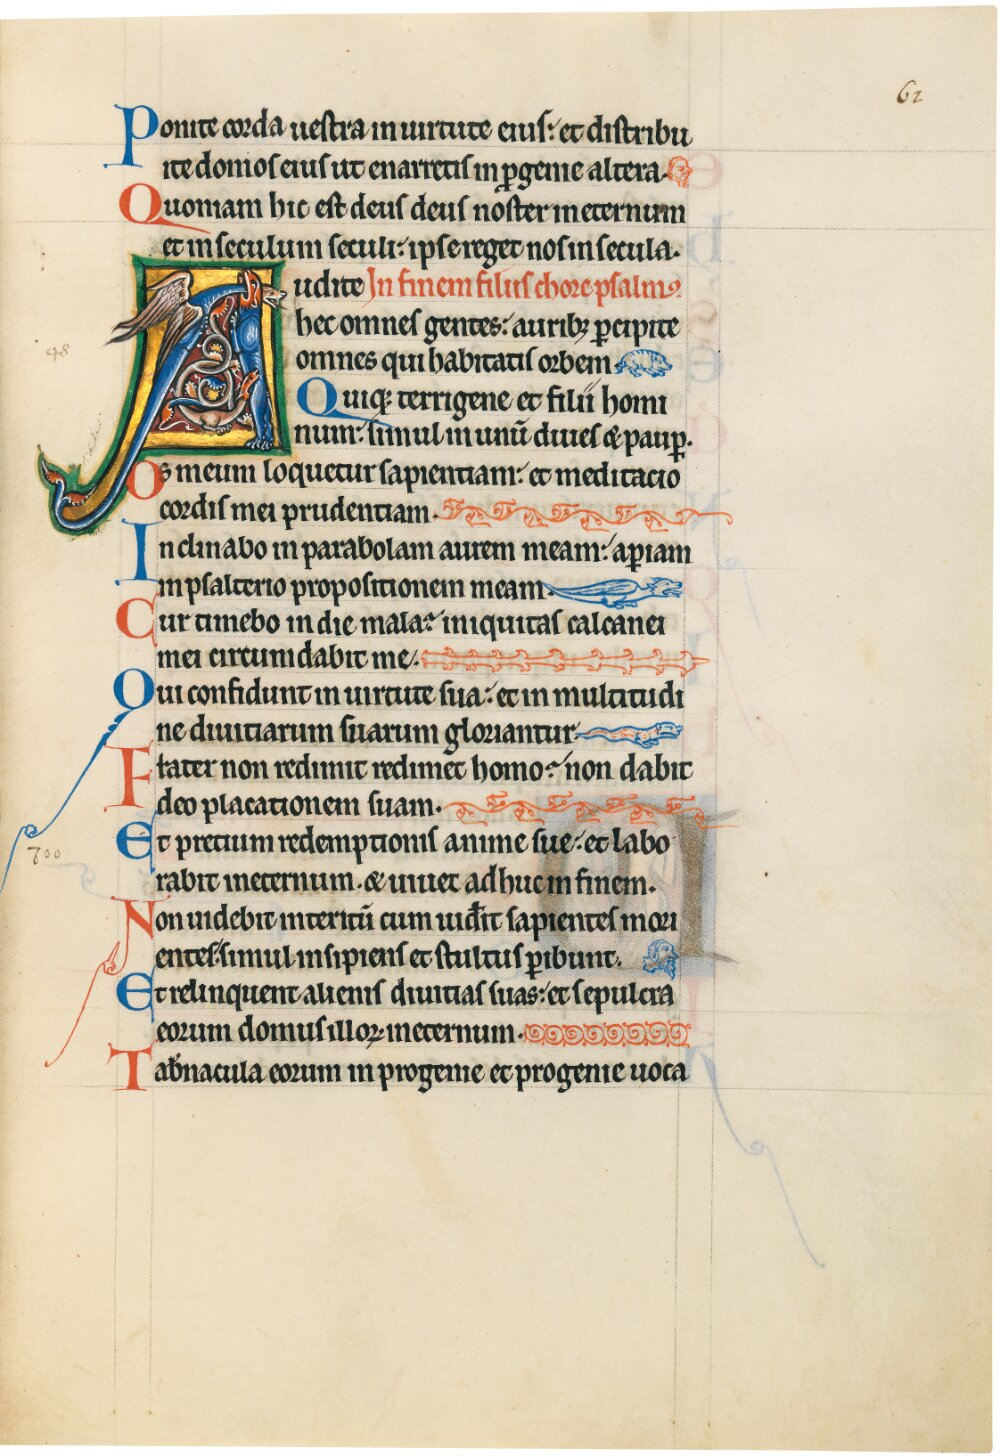 62
Ponite corda uestra in uirtute eius: et distribu
ite domos eius ut enarretis in ꝓgenie altera.
Quoniam hic est deus deus noster in eternum
et in seculum seculi: ipse reget nos in secula.
Audite In finem filiis chore psalmꝰ.
hec omnes gentes: auribꝫ ꝑcipite
omnes qui habitatis orbem
Quiqꝫ terrigene et filii homi
num: simul in unū diues & paupꝑ.
Os meum loquetur sapientiam: et meditacio
cordis mei prudentiam.
Inclinabo in parabolam aurem meam: aꝑiam
in psalterio propositionem meam.
Cur timebo in die mala? iniquitas calcanei
mei circumdabit me.
Qui confidunt in uirtute sua: et in multitudi
ne diuitiarum suarum gloriantur.
Frater non redimit redimet homo? non dabit
deo placationem suam.
Et pretium redemptionis anime sue: et labo
rabit in eternum. & uiuet adhuc in finem.
Non uidebit interitū cum uidīt sapientes mori
entes: simul insipiens et stultus ꝑibunt.
Et relinquent alienis diuitias suas: et sepulcra
eorum domus illoꝝ in eternum.
Tab̄nacula eorum in progenie et progenie uoca
48
700